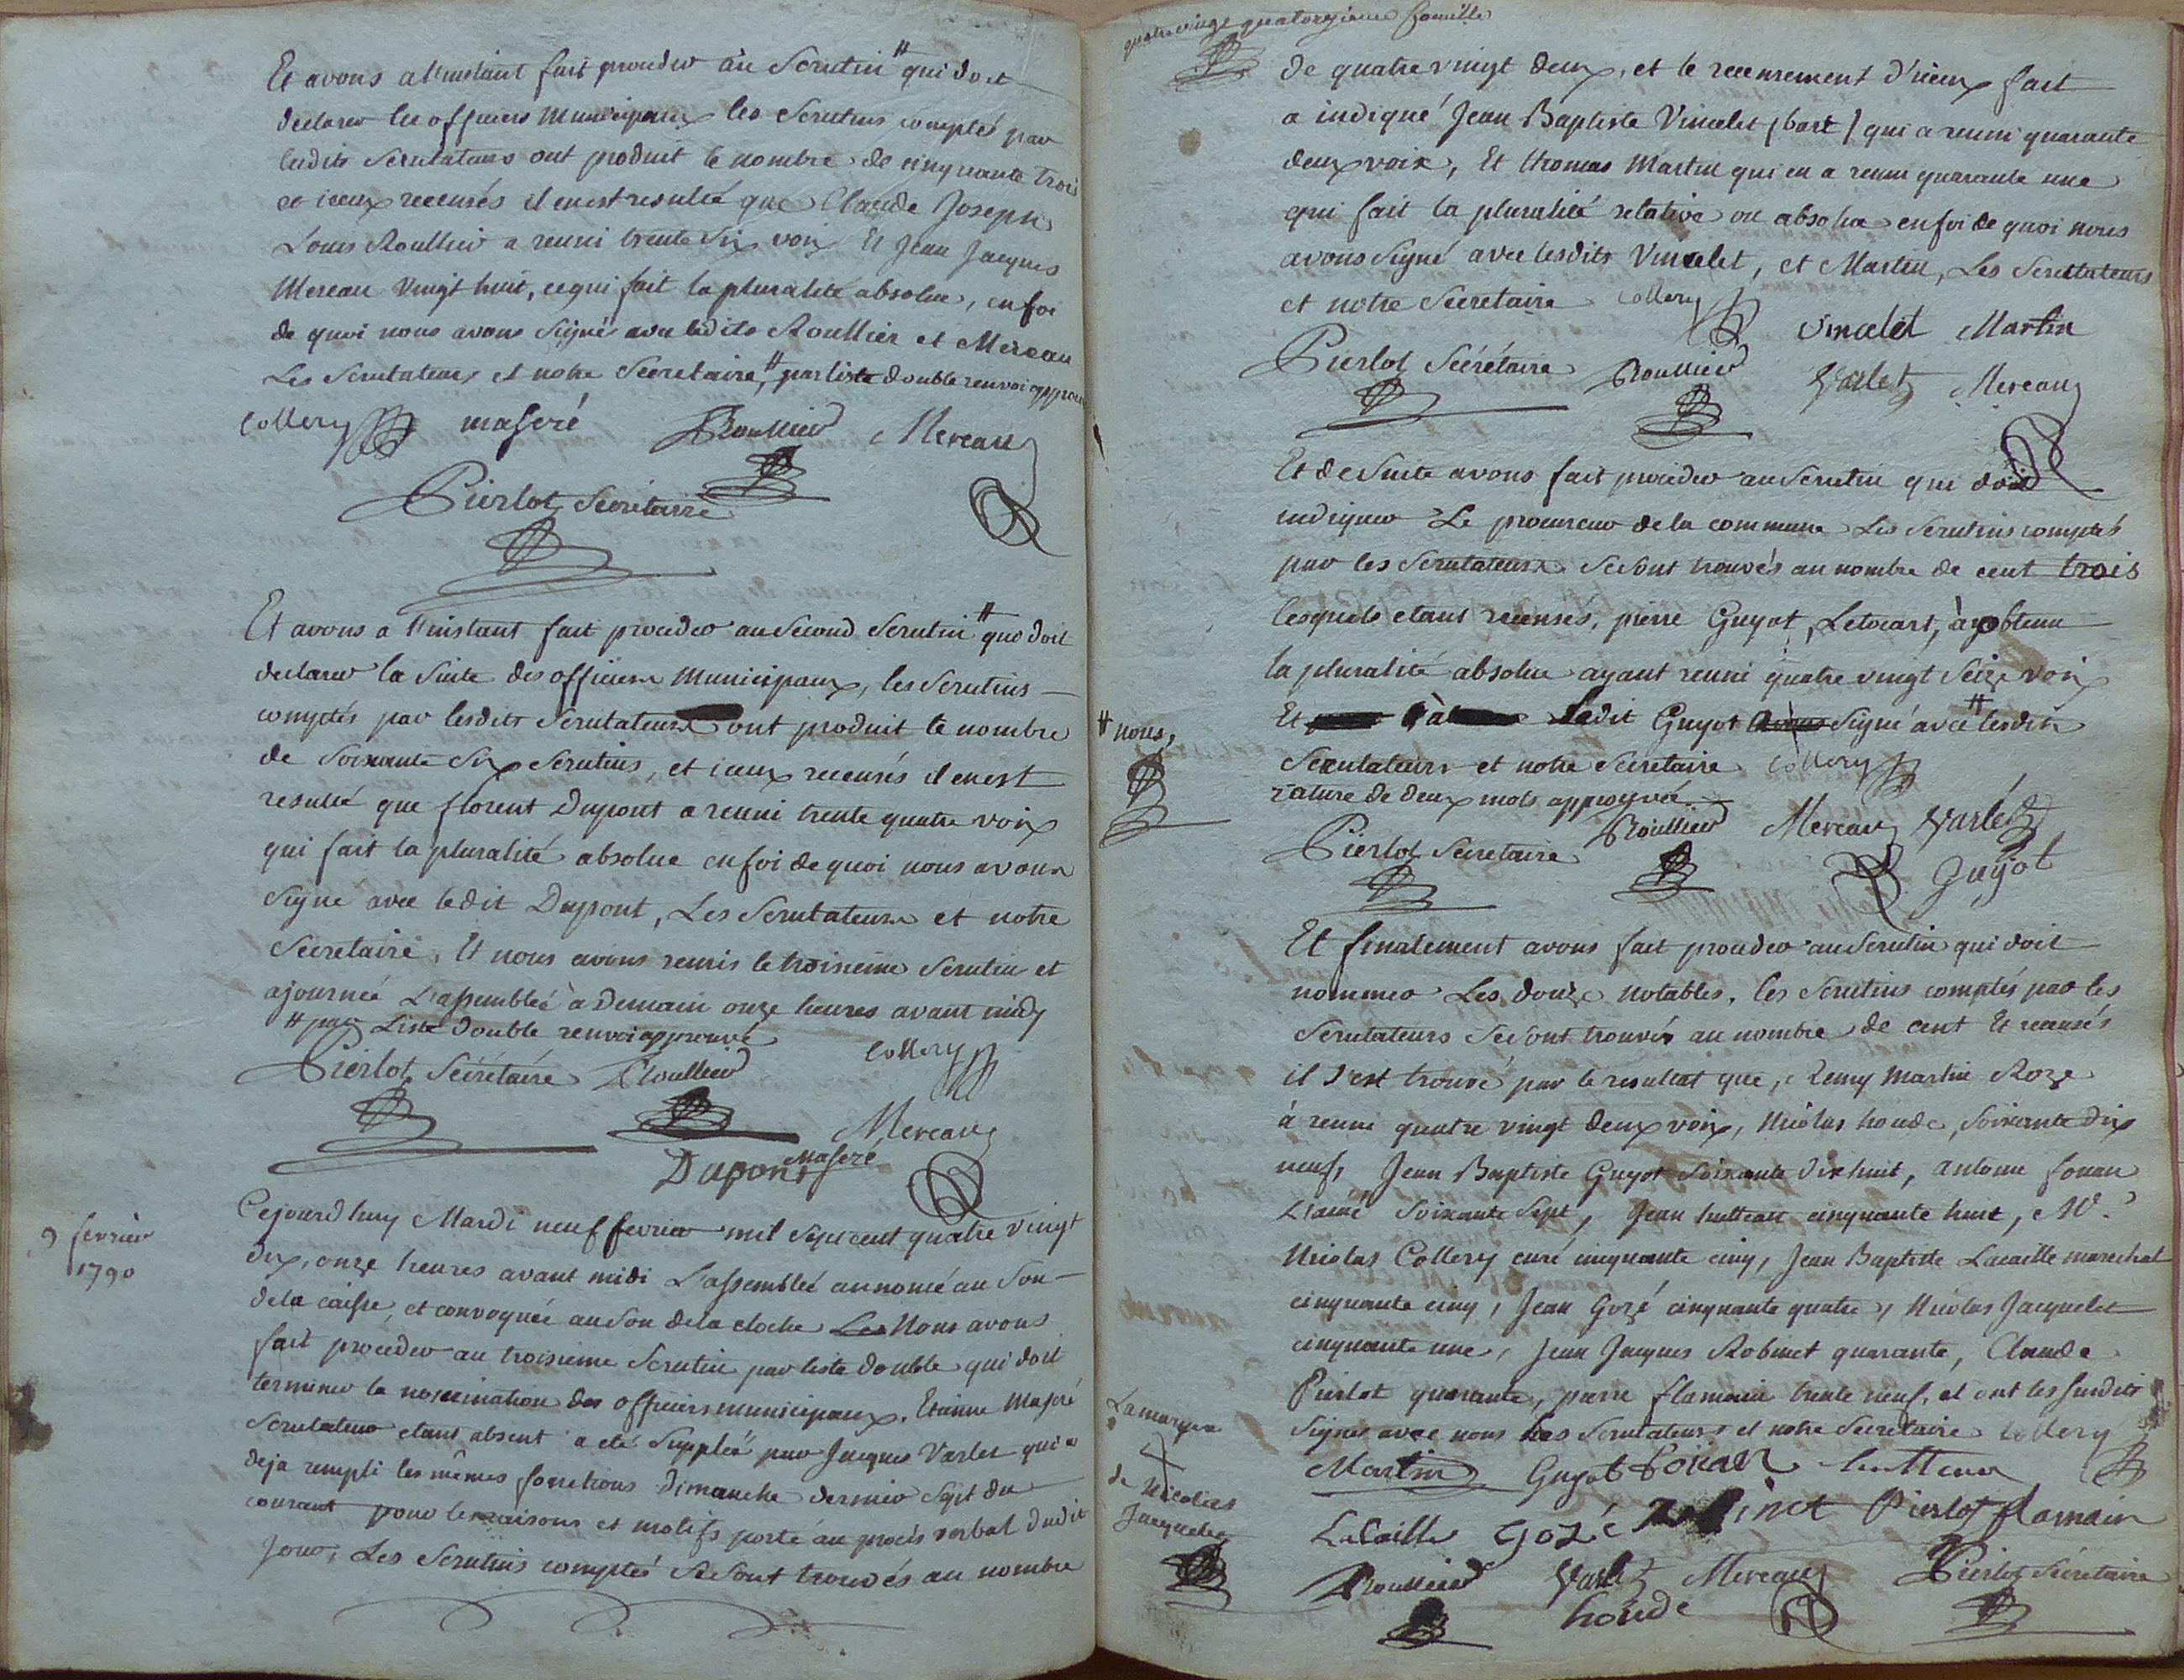 Et avons a l'instant fait proceder au Scrutin # qui doit
declarer les officiers Municipaux les Scrutins comptés par
lesdits Scrutateurs ont produit le nombre de cinquante trois
et iceux recensés il en est resulté que Claude Joseph
Louis Roullier a reuni trente Six voix Et Jean Jacques
Mereau Vingt huit, ce qui fait la pluralité absolue, en foi
de quoi nous avons Signé avec lesdits Roullier et Mereau
Les Scrutateurs et notre Secretaire, # par liste double renvoi approuvé
Collery Maseré Roullier Mereau
Pierlot Secrétaire
Et avons a l'instant fait proceder au Second Scrutin # qui doit
declarer la Suite des officiers Municipaux, les Scrutins
comptés par lesdits Scrutateurs ont produit le nombre
de Soixante Six Scrutins, et iceux recensés il en est
resulté que florent Dupont a reuni trente quatre voix
qui fait la pluralité absolue en foi de quoi nous avons
Signé avec ledit Dupont, Les Scrutateurs et notre
Secretaire, Et nous avons remis le troisieme Scrutin et
ajournéé L'assembléé à Demain onze heures avant midy
# par Liste double renvoi approuvé
Collery
Pierlot Sécrétaire Roullier
Mereau
Dupont Maseré
9 fevrier
1790
Cejourd'huy Mardi neuf fevrier mil Sept cent quatre vingt
dix, onze heures avant midi L'assembléé annoncé au Son
de la caisse, et convoquéé au Son de la cloche Les Nous avons
fait proceder au troisieme Scrutin par liste double qui doit
terminer la nomination des officiers municipaux. Etienne Maseré
Scrutateur etant absent a eté Suppléé par Jacques Varlet qui a
deja rempli les mêmes fonctions Dimanche dernier Sept du
courant pour les raisons et motifs porté au procès verbal dudit
Jour, Les Scrutins comptés Se Sont trouvés au nombre
quatre vingt quatorzieme feuille
de quatre vingt deux, et le recensement d'iceux fait
a indiqué Jean Baptiste Vincelet (bart) qui a reuni quarante
deux voix, Et thomas Martin qui en a reuni quarante une
qui fait la pluralité relative ou absolue en foi de quoi nous
avons Signé avec lesdits Vincelet, et Martin, Les Scrutateurs
et notre Secretaire Collery
Vincelet Martin
Pierlot Sécrétaire Roullier Varlet Mereau
Et de Suite avons fait proceder au Scrutin qui doit
indiquer Le procureur de la commune Les Scrutins comptés
par les Scrutateurs Se Sont trouvés au nombre de cent trois
lesquels etant recensés, pierre Guyot, Letocart, à obtenu
la pluralité absolue ayant reuni quatre vingt Seize voix
Et Ledit Guyot Signé avec # lesdits
# nous,
Scrutateurs et notre Secretaire Collery
rature de deux mots approuvée
Pierlot Secretaire Roullier Mereau Varlet
Guyot
Et finalement avons fait proceder au Scrutin qui doit
nommer Les douze notables, les Scrutins comptés par les
Scrutateurs Se Sont trouvés au nombre de cent Et recensés
il S'est trouvé par le resultat que, Remy Martin Roze
à reuni quatre vingt deux voix, Nicolas houde, Soixante dix
neuf, Jean Baptiste Guyot Soixante dix huit, antoine fouan
L'ainé Soixante Sept, Jean hutteau cinquante huit, Mr.
Nicolas Collery curé cinquante cinq, Jean Baptiste Lacaille marechal
cinquante cinq, Jean Gozé cinquante quatre, Nicolas Jacquelet
cinquante une, Jean Jacques Robinet quarante, Claude
Pierlot quarante, pierre flamain trente neuf, et ont les Susdits
Signés avec nous Les Scrutateurs et notre Secretaire Collery
La marque
de Nicolas
Jacquelet
Martin Guyot Foüan hutteau
Lacaille Gozé Robinet Pierlot flamain
Roullier Varlet Mereau Pierlot Secrétaire
houde